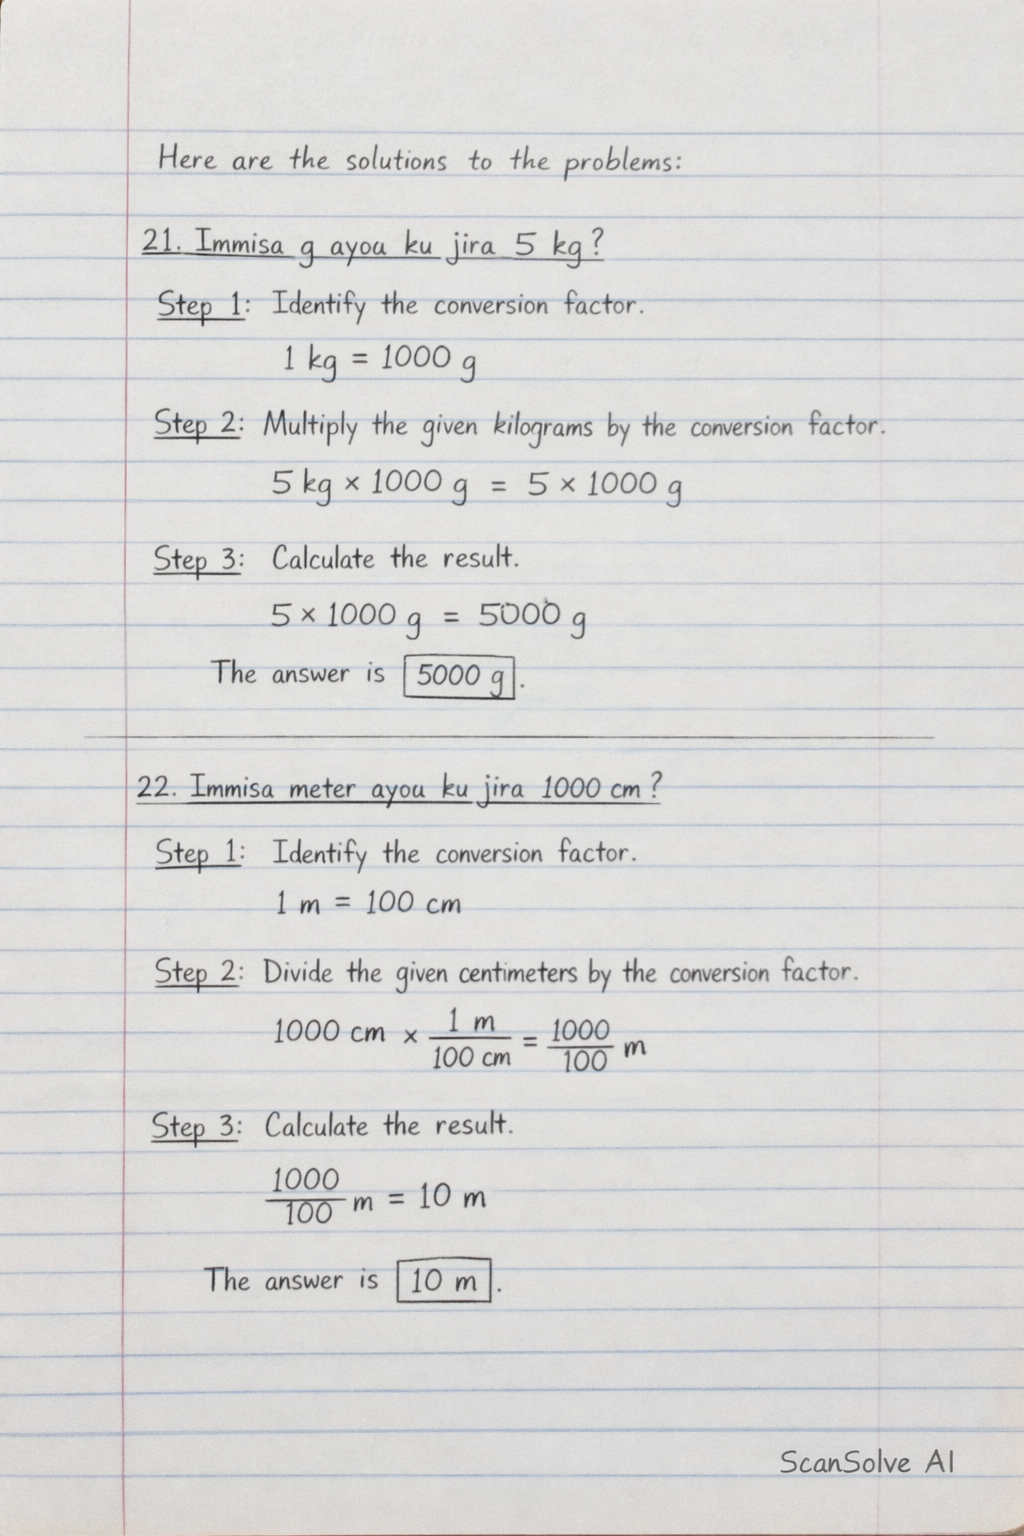 Here are the solutions to the problems:
21. Immisa g ayou ku jira 5 kg?
Step 1: Identify the conversion factor.
1 kg = 1000 g
Step 2: Multiply the given kilograms by the conversion factor.
5 kg × 1000 g = 5 × 1000 g
Step 3: Calculate the result.
5 × 1000 g = 5000 g
The answer is 5000 g.
22. Immisa meter ayou ku jira 1000 cm?
Step 1: Identify the conversion factor.
1 m = 100 cm
Step 2: Divide the given centimeters by the conversion factor.
1000 cm × 1 m / 100 cm = 1000 / 100 m
Step 3: Calculate the result.
1000 / 100 m = 10 m
The answer is 10 m.
ScanSolve AI